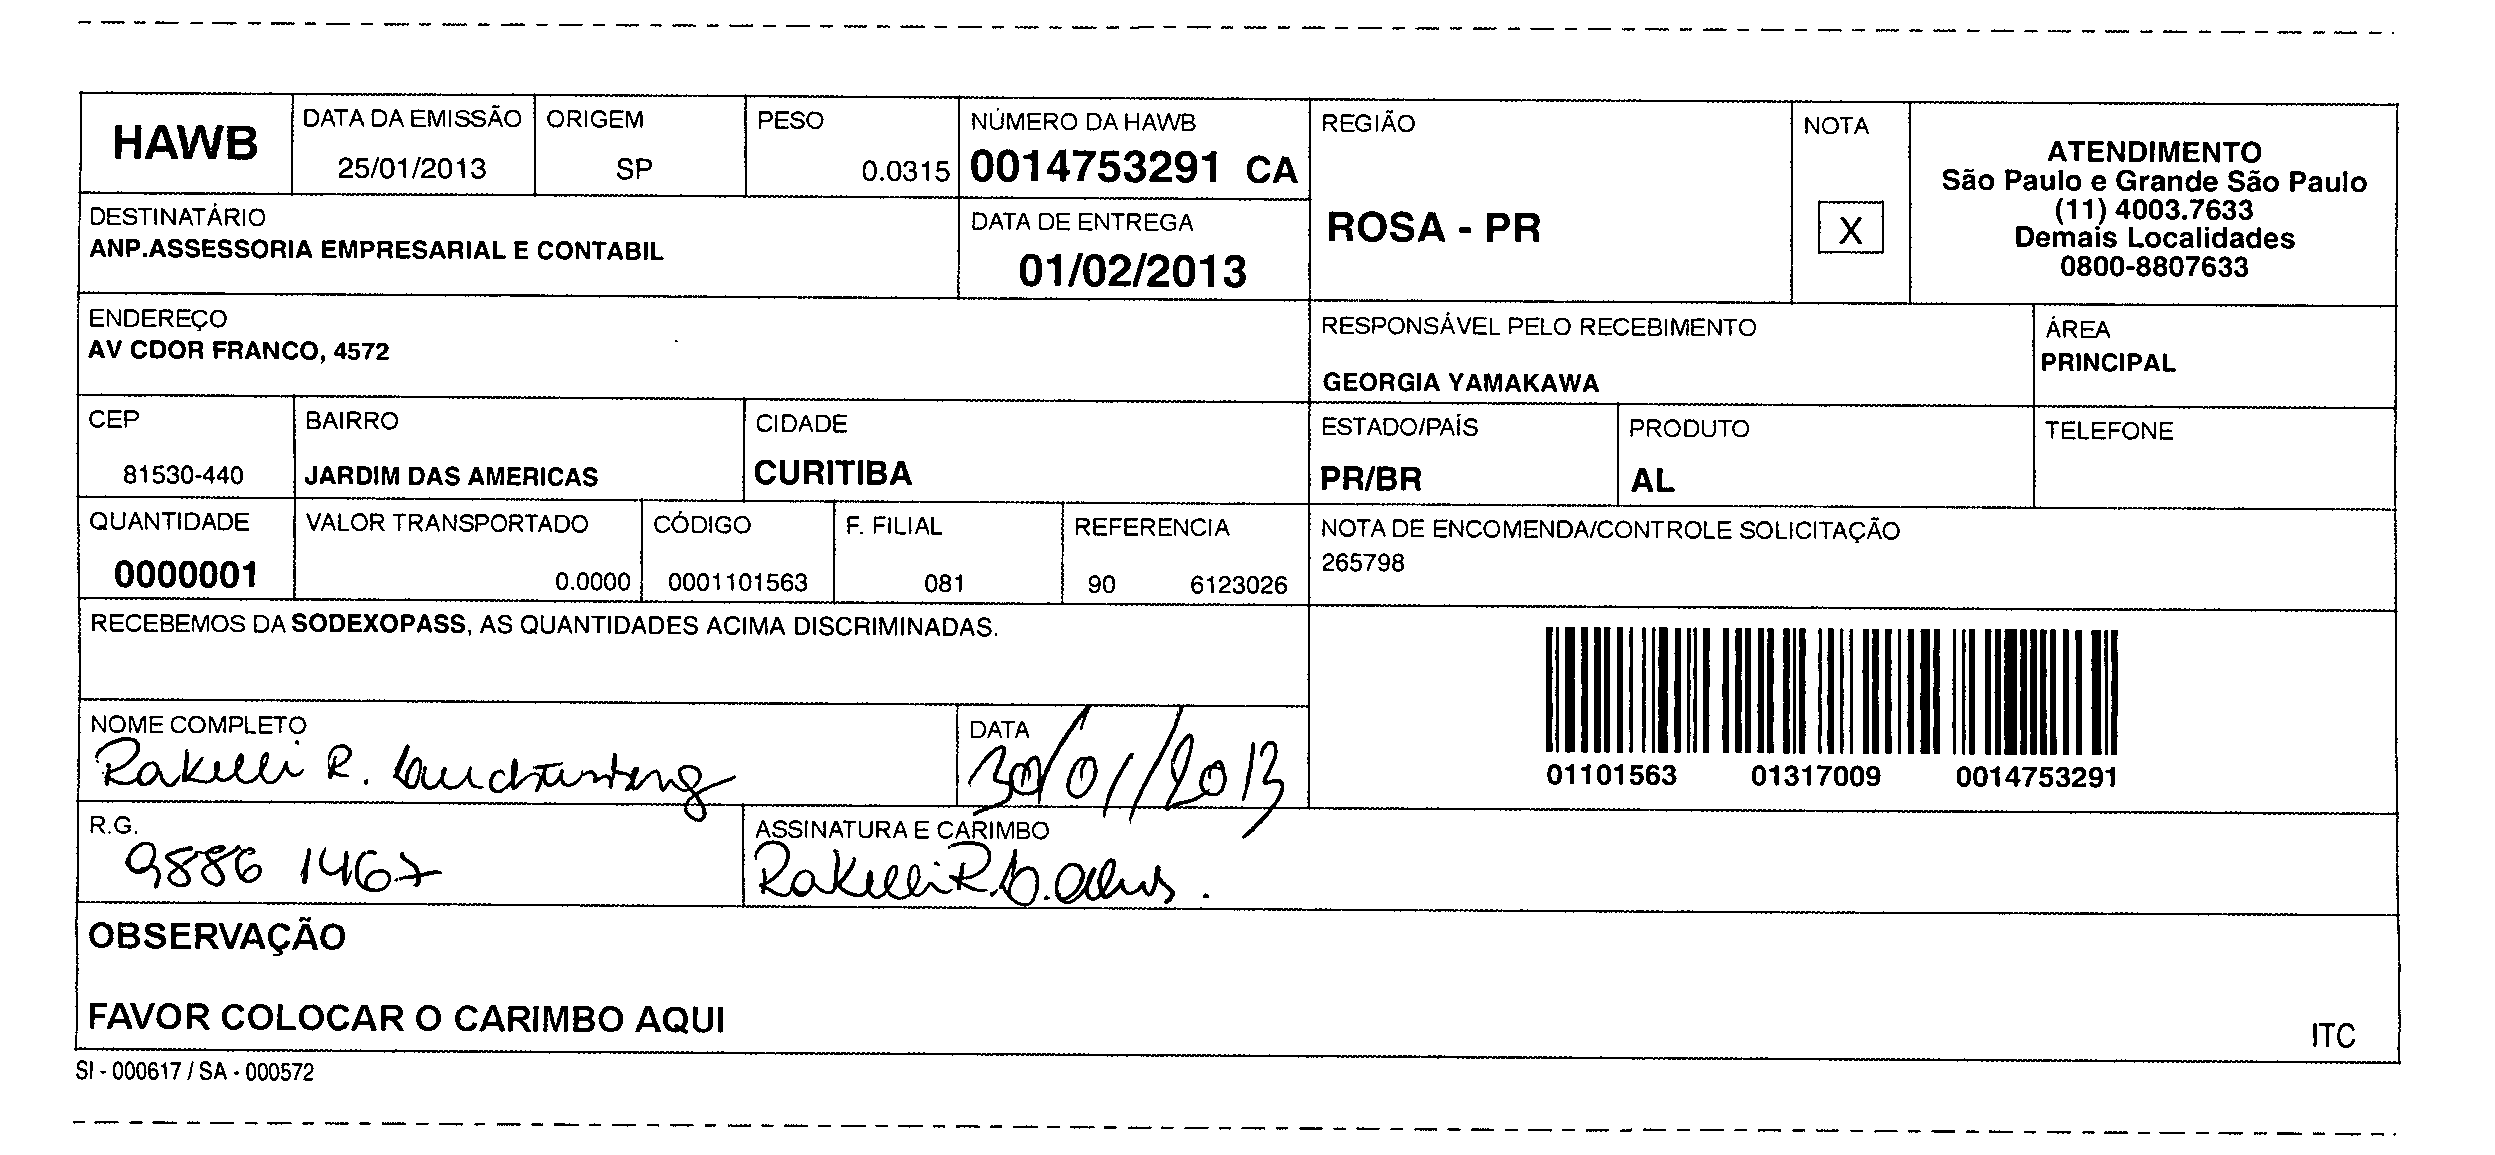 HAWB
DATA DA EMISSÃO
25/01/2013
ORIGEM
SP
PESO
0.0315
NÚMERO DA HAWB
0014753291 CA
REGIÃO
ROSA - PR
NOTA
X
ATENDIMENTO
São Paulo e Grande São Paulo
(11) 4003.7633
Demais Localidades
0800-8807633
DESTINATÁRIO
ANP.ASSESSORIA EMPRESARIAL E CONTABIL
DATA DE ENTREGA
01/02/2013
ENDEREÇO
AV CDOR FRANCO, 4572
RESPONSÁVEL PELO RECEBIMENTO
GEORGIA YAMAKAWA
ÁREA
PRINCIPAL
CEP
81530-440
BAIRRO
JARDIM DAS AMERICAS
CIDADE
CURITIBA
ESTADO/PAÍS
PR/BR
PRODUTO
AL
TELEFONE
QUANTIDADE
0000001
VALOR TRANSPORTADO
0.0000
CÓDIGO
0001101563
F. FILIAL
081
REFERENCIA
90 6123026
NOTA DE ENCOMENDA/CONTROLE SOLICITAÇÃO
265798
RECEBEMOS DA SODEXOPASS, AS QUANTIDADES ACIMA DISCRIMINADAS.
01101563 01317009 0014753291
NOME COMPLETO
Rakelli R.
DATA
30/01/2013
R.G.
9886 1467
ASSINATURA E CARIMBO
Rakelli R.
OBSERVAÇÃO
FAVOR COLOCAR O CARIMBO AQUI
ITC
SI - 000617 / SA - 000572